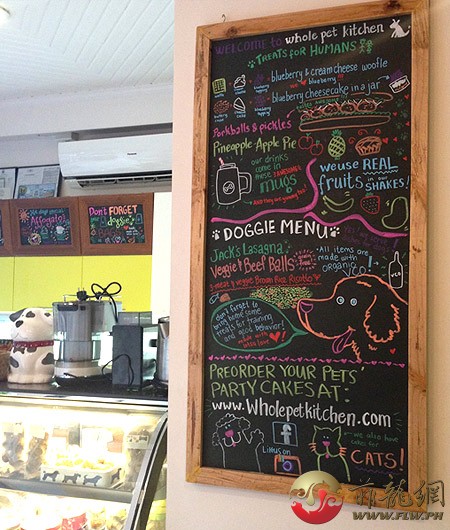 WELCOME to whole pet kitchen
TREATS for HUMANS
blueberry & cream cheese woofle
blueberry cheesecake in a jar
Porkballs & pickles
Pineapple Apple Pie
our drinks
come in
these
MUGS
we use REAL
fruits in our
SHAKES!
DOGGIE MENU
Jack's Lasagna
Veggie & Beef Balls
3-meat & veggie Brown Rice Risotto
All items are
made with
organic
VCO!
don't forget to
take home some
treats for training
and good behavior!
made with
extra love
PREORDER YOUR PETS'
PARTY CAKES AT:
www.Wholepetkitchen.com
Like us on
f
we also have
cakes for
CATS!
Affogato!
Don't FORGET
doggie
VCO
WWW.FLW.PH